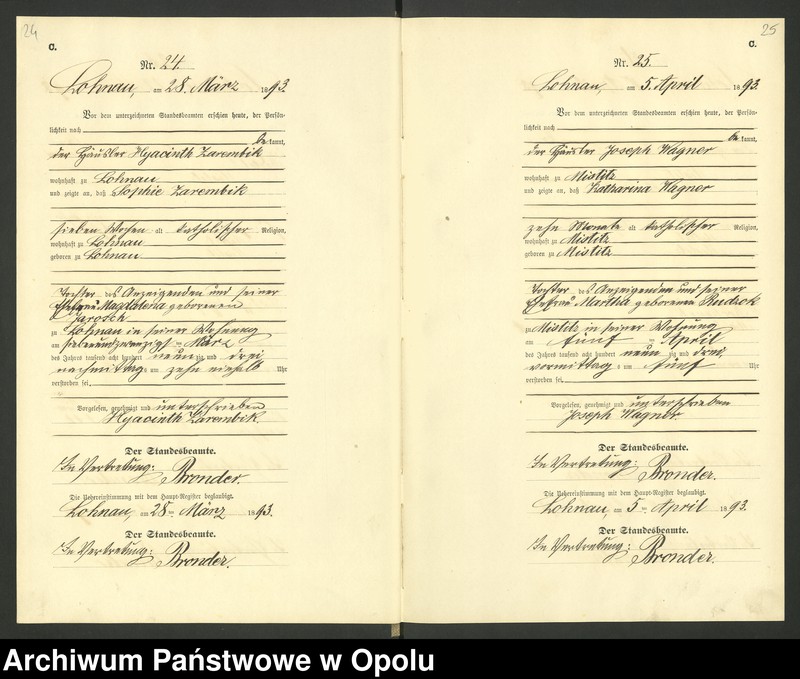 24
C.
Nr. 24.
Lohnau, am 28. März 1893.
Vor dem unterzeichneten Standesbeamten erschien heute, der Persön-
lichkeit nach
be kannt,
der Häusler Hyacinth Zarembik
wohnhaft zu Lohnau
und zeigte an, daß Sophie Zarembik
sieben Wochen alt katholischer Religion,
wohnhaft zu Lohnau
geboren zu Lohnau
Tochter des Anzeigenden und seiner
Ehefrau Magdalena geborenen
Jarosch
zu Lohnau in seiner Wohnung
am siebenundzwanzigsten März
des Jahres tausend acht hundert neun zig und drei
nachmittag um zehn einhalb Uhr
verstorben sei.
Vorgelesen, genehmigt und unterschrieben
Hyacinth Zarembik.
Der Standesbeamte.
In Vertretung: Bronder.
Die Uebereinstimmung mit dem Haupt-Register beglaubigt.
Lohnau, am 28ten März 1893.
Der Standesbeamte.
In Vertretung: Bronder.
25
C.
Nr. 25.
Lohnau, am 5. April 1893.
Vor dem unterzeichneten Standesbeamten erschien heute, der Persön-
lichkeit nach
be kannt,
der Häusler Joseph Wagner
wohnhaft zu Mistitz
und zeigte an, daß Katharina Wagner
zehn Monate alt katholischer Religion,
wohnhaft zu Mistitz
geboren zu Mistitz
Tochter des Anzeigenden und seiner
Ehefrau Martha geborenen
zu Mistitz in seiner Wohnung
am fünften April
des Jahres tausend acht hundert neun zig und drei
vormittag um fünf Uhr
verstorben sei.
Vorgelesen, genehmigt und unterschrieben
Joseph Wagner
Der Standesbeamte.
In Vertretung: Bronder.
Die Uebereinstimmung mit dem Haupt-Register beglaubigt.
Lohnau, am 5ten April 1893.
Der Standesbeamte.
In Vertretung: Bronder.
Archiwum Państwowe w Opolu